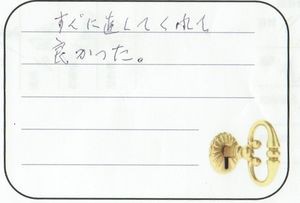 すぐに直してくれて
良かった。